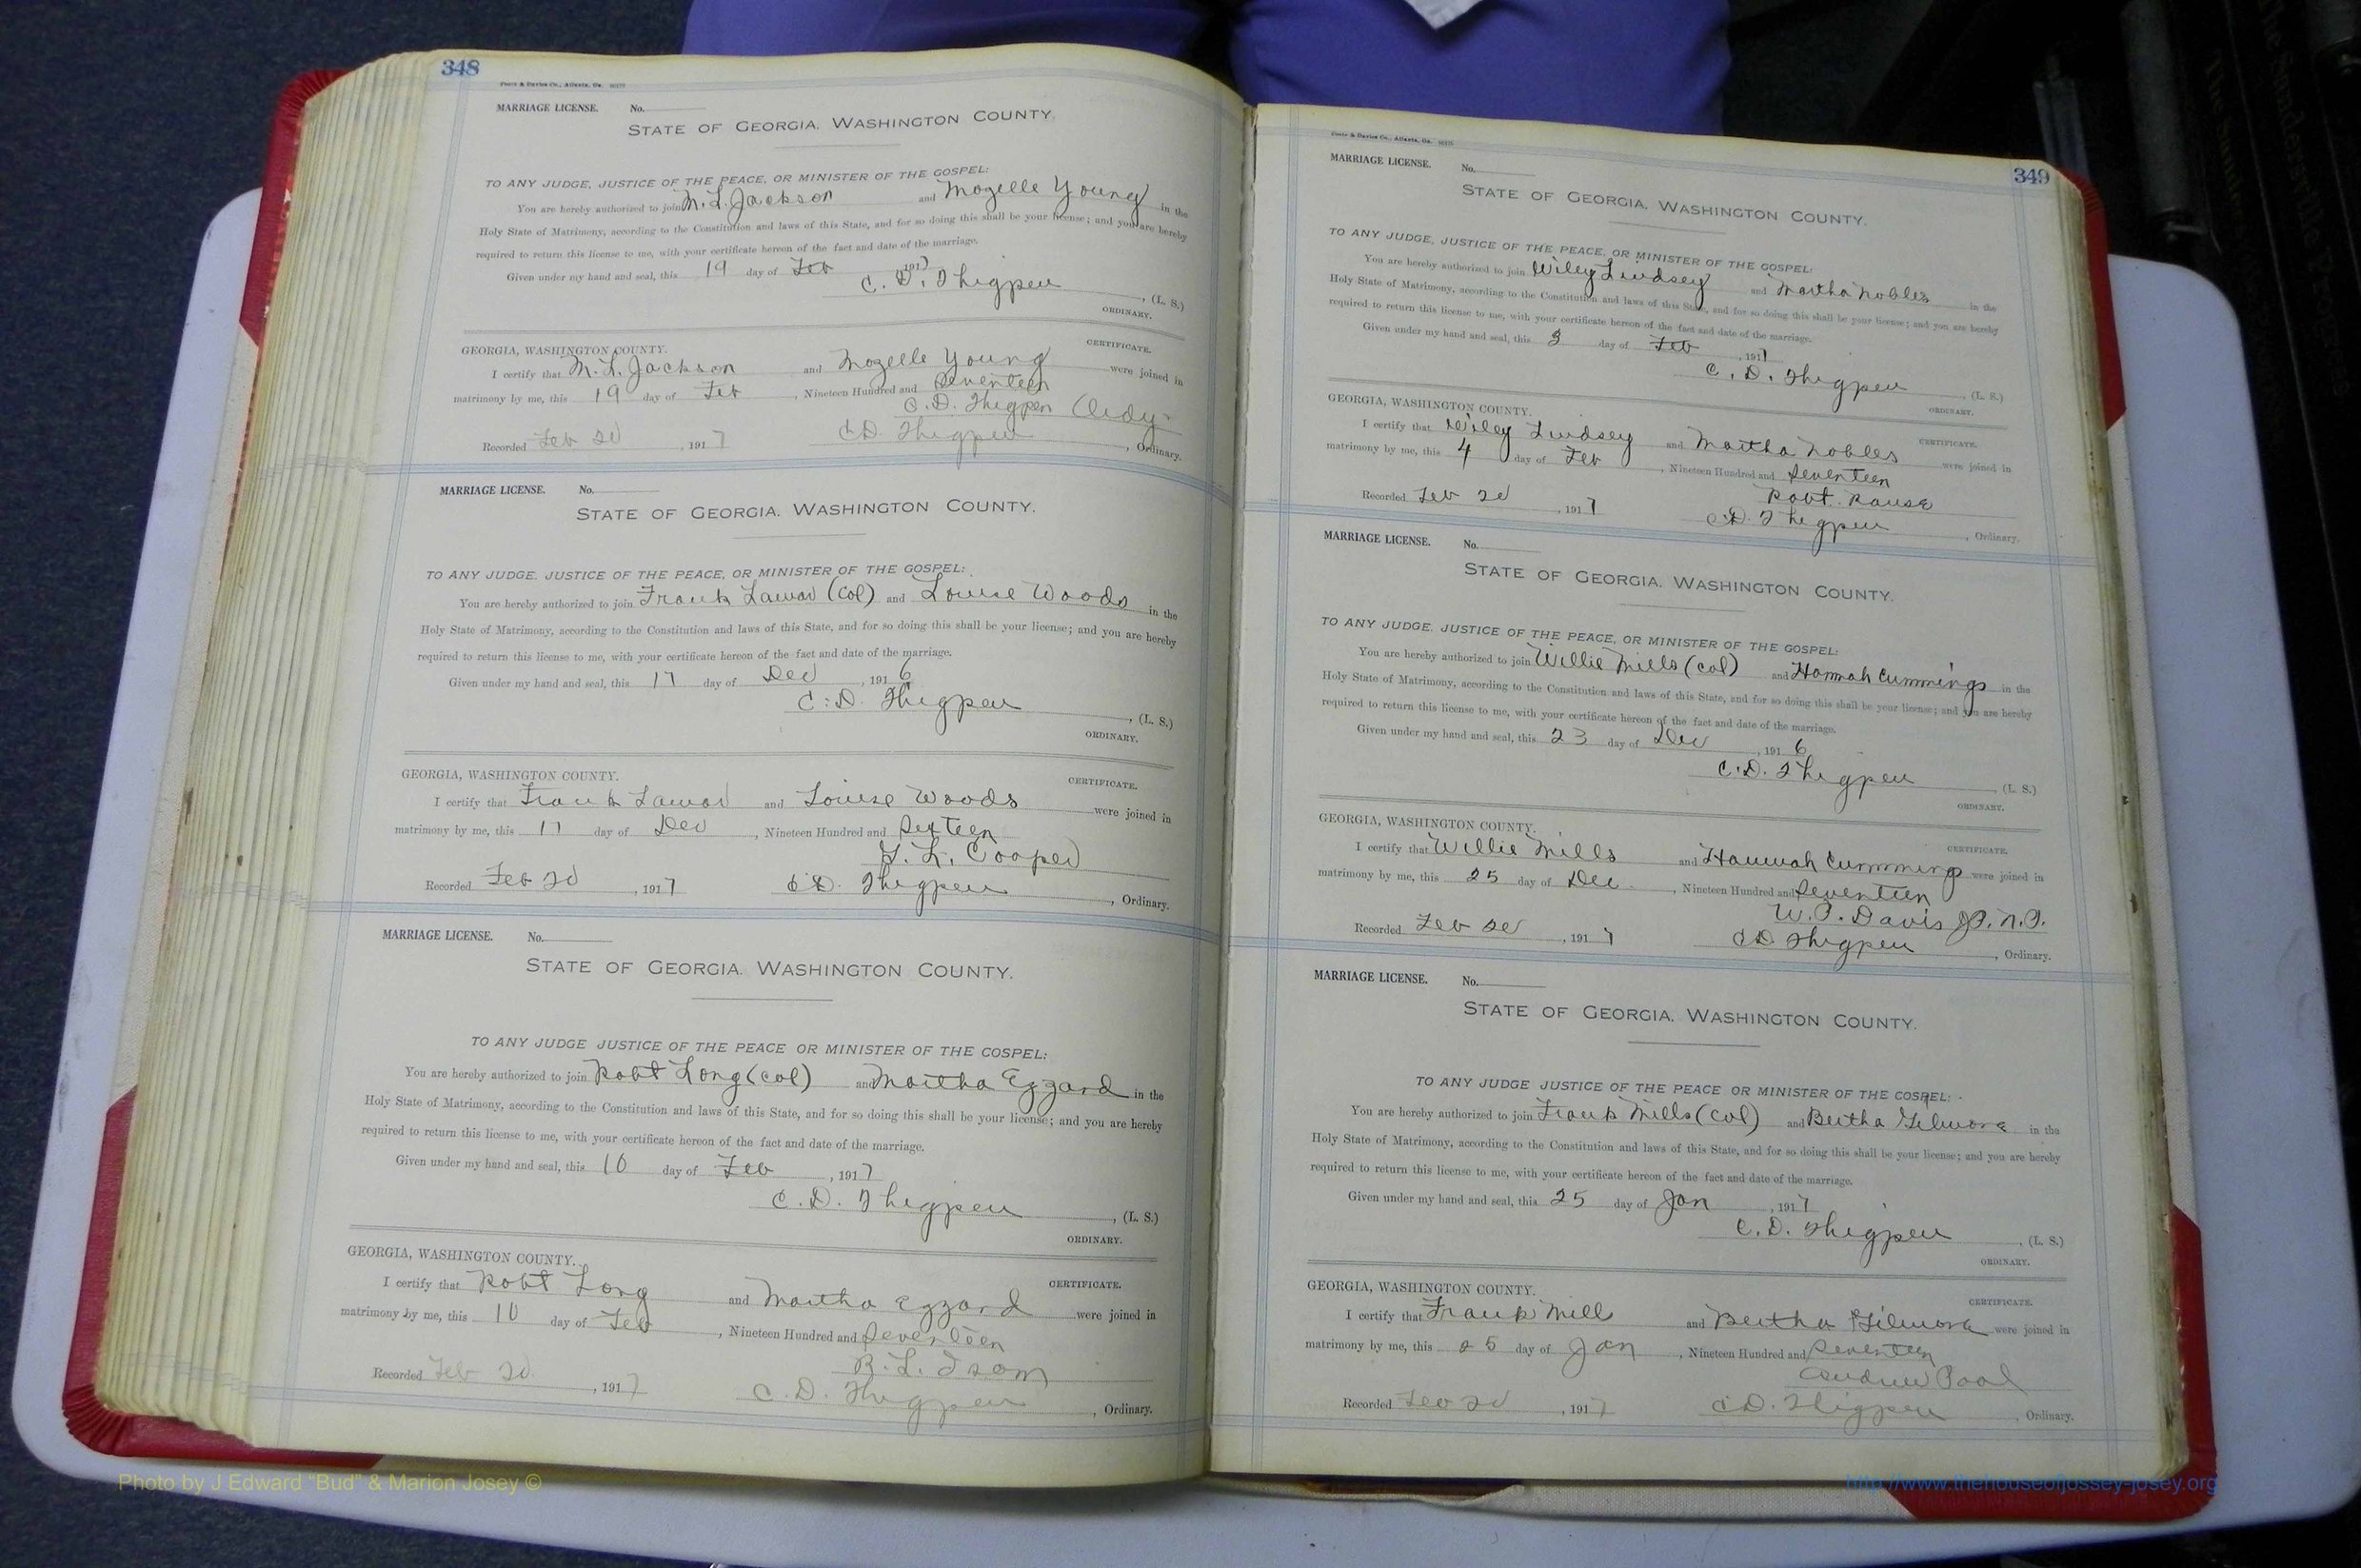 348
MARRIAGE LICENSE. No.
STATE OF GEORGIA. WASHINGTON COUNTY.
TO ANY JUDGE, JUSTICE OF THE PEACE, OR MINISTER OF THE GOSPEL:
You are hereby authorized to join M. L. Jackson and Mozelle Young in the
Holy State of Matrimony, according to the Constitution and laws of this State, and for so doing this shall be your license; and you are hereby
required to return this license to me, with your certificate hereon of the fact and date of the marriage.
Given under my hand and seal, this 19 day of Feb 1917
C. D. Thigpen, (L. S.)
ORDINARY.
CERTIFICATE.
GEORGIA, WASHINGTON COUNTY.
I certify that M. L. Jackson and Mozelle Young were joined in
matrimony by me, this 19 day of Feb, Nineteen Hundred and Seventeen
C. D. Thigpen Ordy.
Recorded Feb 20, 1917 C D. Thigpen, Ordinary.
MARRIAGE LICENSE. No.
STATE OF GEORGIA. WASHINGTON COUNTY.
TO ANY JUDGE. JUSTICE OF THE PEACE, OR MINISTER OF THE GOSPEL:
You are hereby authorized to join Frank Lamar (Col) and Louise Woods in the
Holy State of Matrimony, according to the Constitution and laws of this State, and for so doing this shall be your license; and you are hereby
required to return this license to me, with your certificate hereon of the fact and date of the marriage.
Given under my hand and seal, this 17 day of Dec, 1916
C. D. Thigpen, (L. S.)
ORDINARY.
GEORGIA, WASHINGTON COUNTY.
CERTIFICATE.
I certify that Frank Lamar and Louise Woods were joined in
matrimony by me, this 17 day of Dec, Nineteen Hundred and Sixteen
L. Cooper
Recorded Feb 20, 1917 C D. Thigpen, Ordinary.
MARRIAGE LICENSE. No.
STATE OF GEORGIA. WASHINGTON COUNTY.
TO ANY JUDGE JUSTICE OF THE PEACE OR MINISTER OF THE GOSPEL:
You are hereby authorized to join Robt Long (col) and Martha Ezzard in the
Holy State of Matrimony, according to the Constitution and laws of this State, and for so doing this shall be your license; and you are hereby
required to return this license to me, with your certificate hereon of the fact and date of the marriage.
Given under my hand and seal, this 10 day of Feb, 1917
C. D. Thigpen, (L. S.)
ORDINARY.
GEORGIA, WASHINGTON COUNTY.
CERTIFICATE.
I certify that Robt Long and Martha Ezzard were joined in
matrimony by me, this 10 day of Feb, Nineteen Hundred and Seventeen
B. L. Isom
Recorded Feb 20, 1917 C. D. Thigpen, Ordinary.
Photo by J Edward "Bud" & Marion Josey ©
349
MARRIAGE LICENSE. No.
STATE OF GEORGIA. WASHINGTON COUNTY.
TO ANY JUDGE, JUSTICE OF THE PEACE, OR MINISTER OF THE GOSPEL:
You are hereby authorized to join Wiley Lindsey and Martha Nobles in the
Holy State of Matrimony, according to the Constitution and laws of this State, and for so doing this shall be your license; and you are hereby
required to return this license to me, with your certificate hereon of the fact and date of the marriage.
Given under my hand and seal, this 3 day of Feb, 1917
C. D. Thigpen, (L. S.)
ORDINARY.
GEORGIA, WASHINGTON COUNTY.
CERTIFICATE.
I certify that Wiley Lindsey and Martha Nobles were joined in
matrimony by me, this 4 day of Feb, Nineteen Hundred and Seventeen
Robt.
Recorded Feb 20, 1917 C D. Thigpen, Ordinary.
MARRIAGE LICENSE. No.
STATE OF GEORGIA. WASHINGTON COUNTY.
TO ANY JUDGE. JUSTICE OF THE PEACE, OR MINISTER OF THE GOSPEL:
You are hereby authorized to join Willie Mills (col) and Hannah Cummings in the
Holy State of Matrimony, according to the Constitution and laws of this State, and for so doing this shall be your license; and you are hereby
required to return this license to me, with your certificate hereon of the fact and date of the marriage.
Given under my hand and seal, this 23 day of Dec, 1916
C. D. Thigpen, (L. S.)
ORDINARY.
GEORGIA, WASHINGTON COUNTY.
CERTIFICATE.
I certify that Willie Mills and Hannah Cummings were joined in
matrimony by me, this 25 day of Dec., Nineteen Hundred and Seventeen
Davis
Recorded Feb 20, 1917 C D Thigpen, Ordinary.
MARRIAGE LICENSE. No.
STATE OF GEORGIA. WASHINGTON COUNTY.
TO ANY JUDGE JUSTICE OF THE PEACE OR MINISTER OF THE GOSPEL:
You are hereby authorized to join Frank Mills (Col) and Bertha Gilmore in the
Holy State of Matrimony, according to the Constitution and laws of this State, and for so doing this shall be your license; and you are hereby
required to return this license to me, with your certificate hereon of the fact and date of the marriage.
Given under my hand and seal, this 25 day of Jan, 1917
C. D. Thigpen, (L. S.)
ORDINARY.
GEORGIA, WASHINGTON COUNTY.
CERTIFICATE.
I certify that Frank Mill and Bertha Gilmore were joined in
matrimony by me, this 25 day of Jan, Nineteen Hundred and Seventeen
Andrew Pool
Recorded Feb 20, 1917 C D. Thigpen, Ordinary.
http://www.thehouseofjossey-josey.org